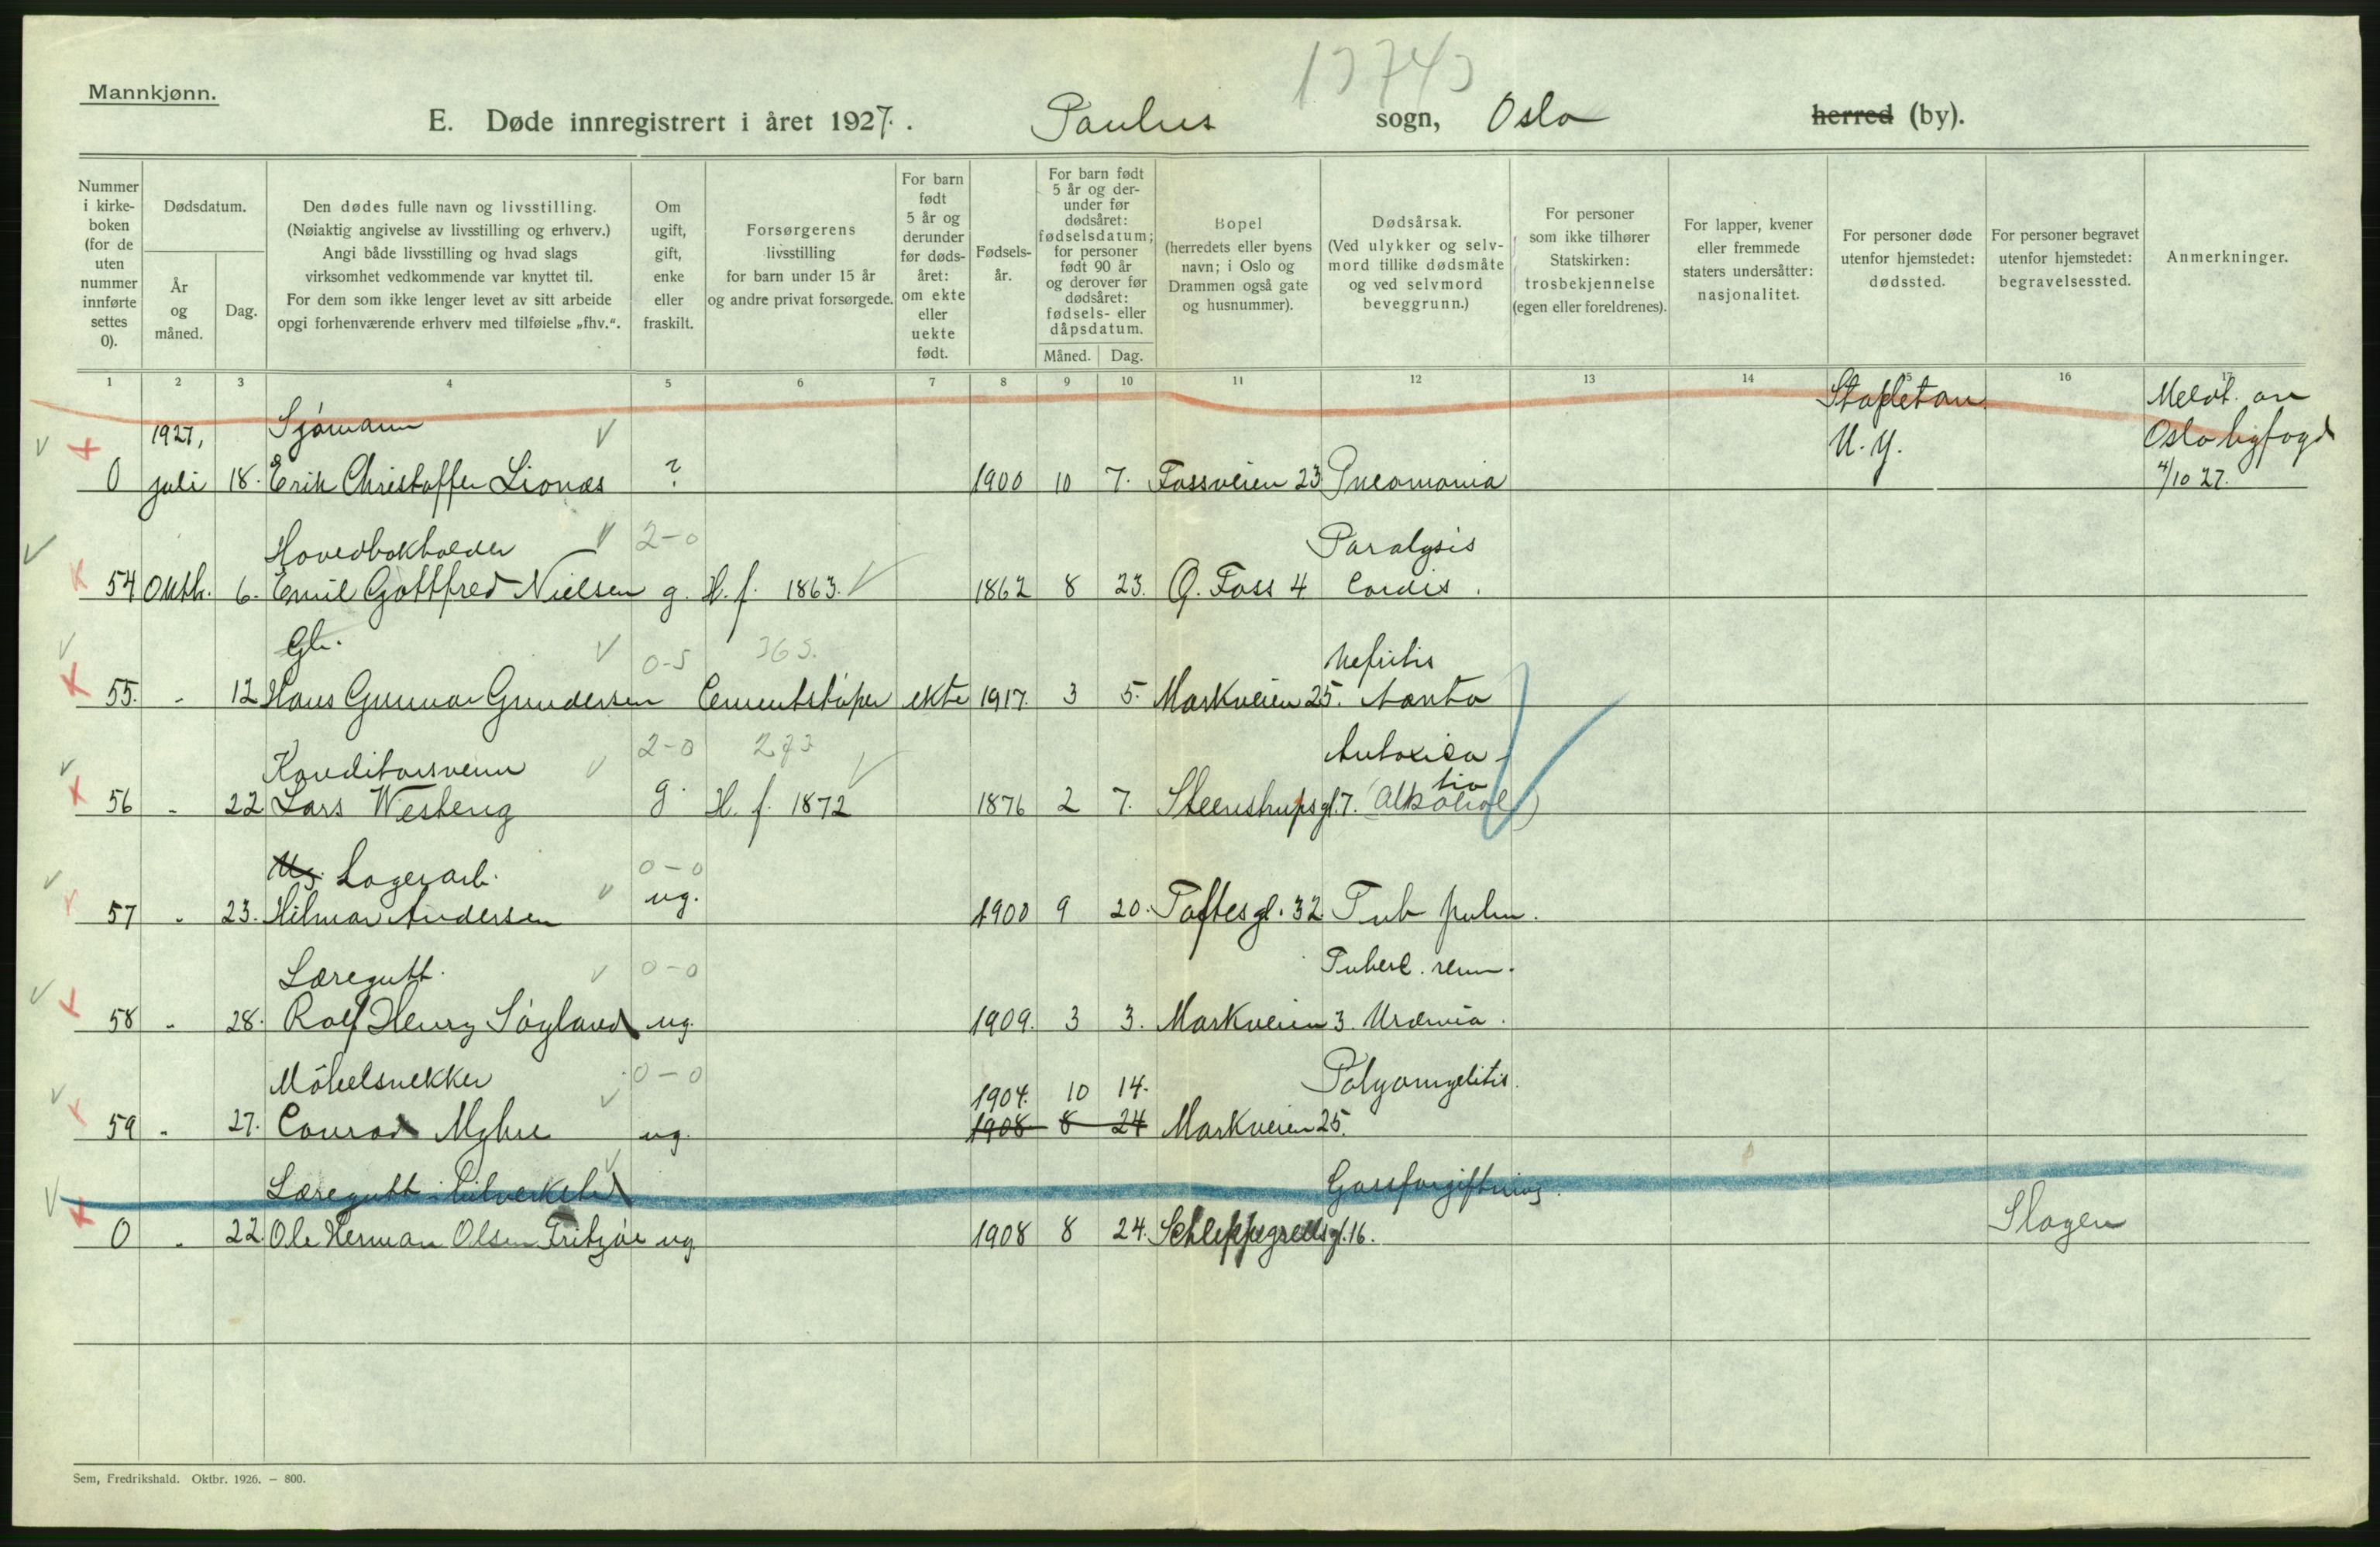 13743
Mannkjønn.
E. Døde innregistrert i året 1927. Paulus sogn, Oslo herred (by).
Nummer i kirke-boken (for de uten nummer innførte settes 0).
Dødsdatum.
År og måned.
Dag.
Den dødes fulle navn og livsstilling.
(Nøiaktig angivelse av livsstilling og erhverv.)
Angi både livsstilling og hvad slags
virksomhet vedkommende var knyttet til.
For dem som ikke lenger levet av sitt arbeide
opgi forhenværende erhverv med tilføielse „fhv.“.
Om ugift, gift, enke eller fraskilt.
Forsørgerens livsstilling for barn under 15 år og andre privat forsørgede.
For barn født 5 år og derunder før døds-året: om ekte eller uekte født.
Fødsels-år.
For barn født 5 år og der-under før dødsåret: fødselsdatum; for personer født 90 år og derover før dødsåret: fødsels- eller dåpsdatum.
Måned. Dag.
Bopel (herredets eller byens navn; i Oslo og Drammen også gate og husnummer).
Dødsårsak. (Ved ulykker og selv-mord tillike dødsmåte og ved selvmord beveggrunn.)
For personer som ikke tilhører Statskirken: trosbekjennelse (egen eller foreldrenes).
For lapper, kvener eller fremmede staters undersåtter: nasjonalitet.
For personer døde utenfor hjemstedet: dødssted.
For personer begravet utenfor hjemstedet: begravelsessted.
Anmerkninger.
1 2 3 4 5 6 7 8 9 10 11 12 13 14 15 16 17
1927, Sjømann Stapletan N. Y. Meldt. av Oslo ligfogd
0 juli 18. Erik Christoffer Lionæs ? 1900 10 7. Fossveien 23 Pneomonia 4/10 27.
Hovedbokholder 2-0 Paralysis
54 Oktb. 6. Emil Gottfred Nielsen g. H. f. 1863. 1862 8 23. Q. Foss 4 Cordis.
Gb. 0-5 365. Nefritis
55. - 12 Hans Gunnar Gundersen Cementstøper ekte 1917. 3 5. Markveien 25. Aanta
Konditorsvenn 2-0 273 Intoxica-
56 - 22 Lars Westeng g. H. f. 1872 1876 2 7. Steenstrupsgt. 7. tio (Alkohol)
Lagerarb. 0-0
57 - 23. Hilmar Andersen ug. 1900 9 20. Toftesgt. 32. Tub pulm.
Læregutt. 0-0 Tuberc. renn.
58 - 28. Rolf Henry Søyland ug. 1909. 3 3. Markveien 3. Urœmia.
Möbelsnekker 0-0 1904. 10 14. Polyomyelitis.
59 - 27. Conrad Myhre ug. 1908 8 24 Markveien 25.
Læregutt i bilverksted Gassforgiftning.
0 - 22. Ole Herman Olsen Fritzøe ug 1908 8 24. Schleppegrellsgt. 16. Slagen
Sem, Fredrikshald. Oktbr. 1926. — 800.